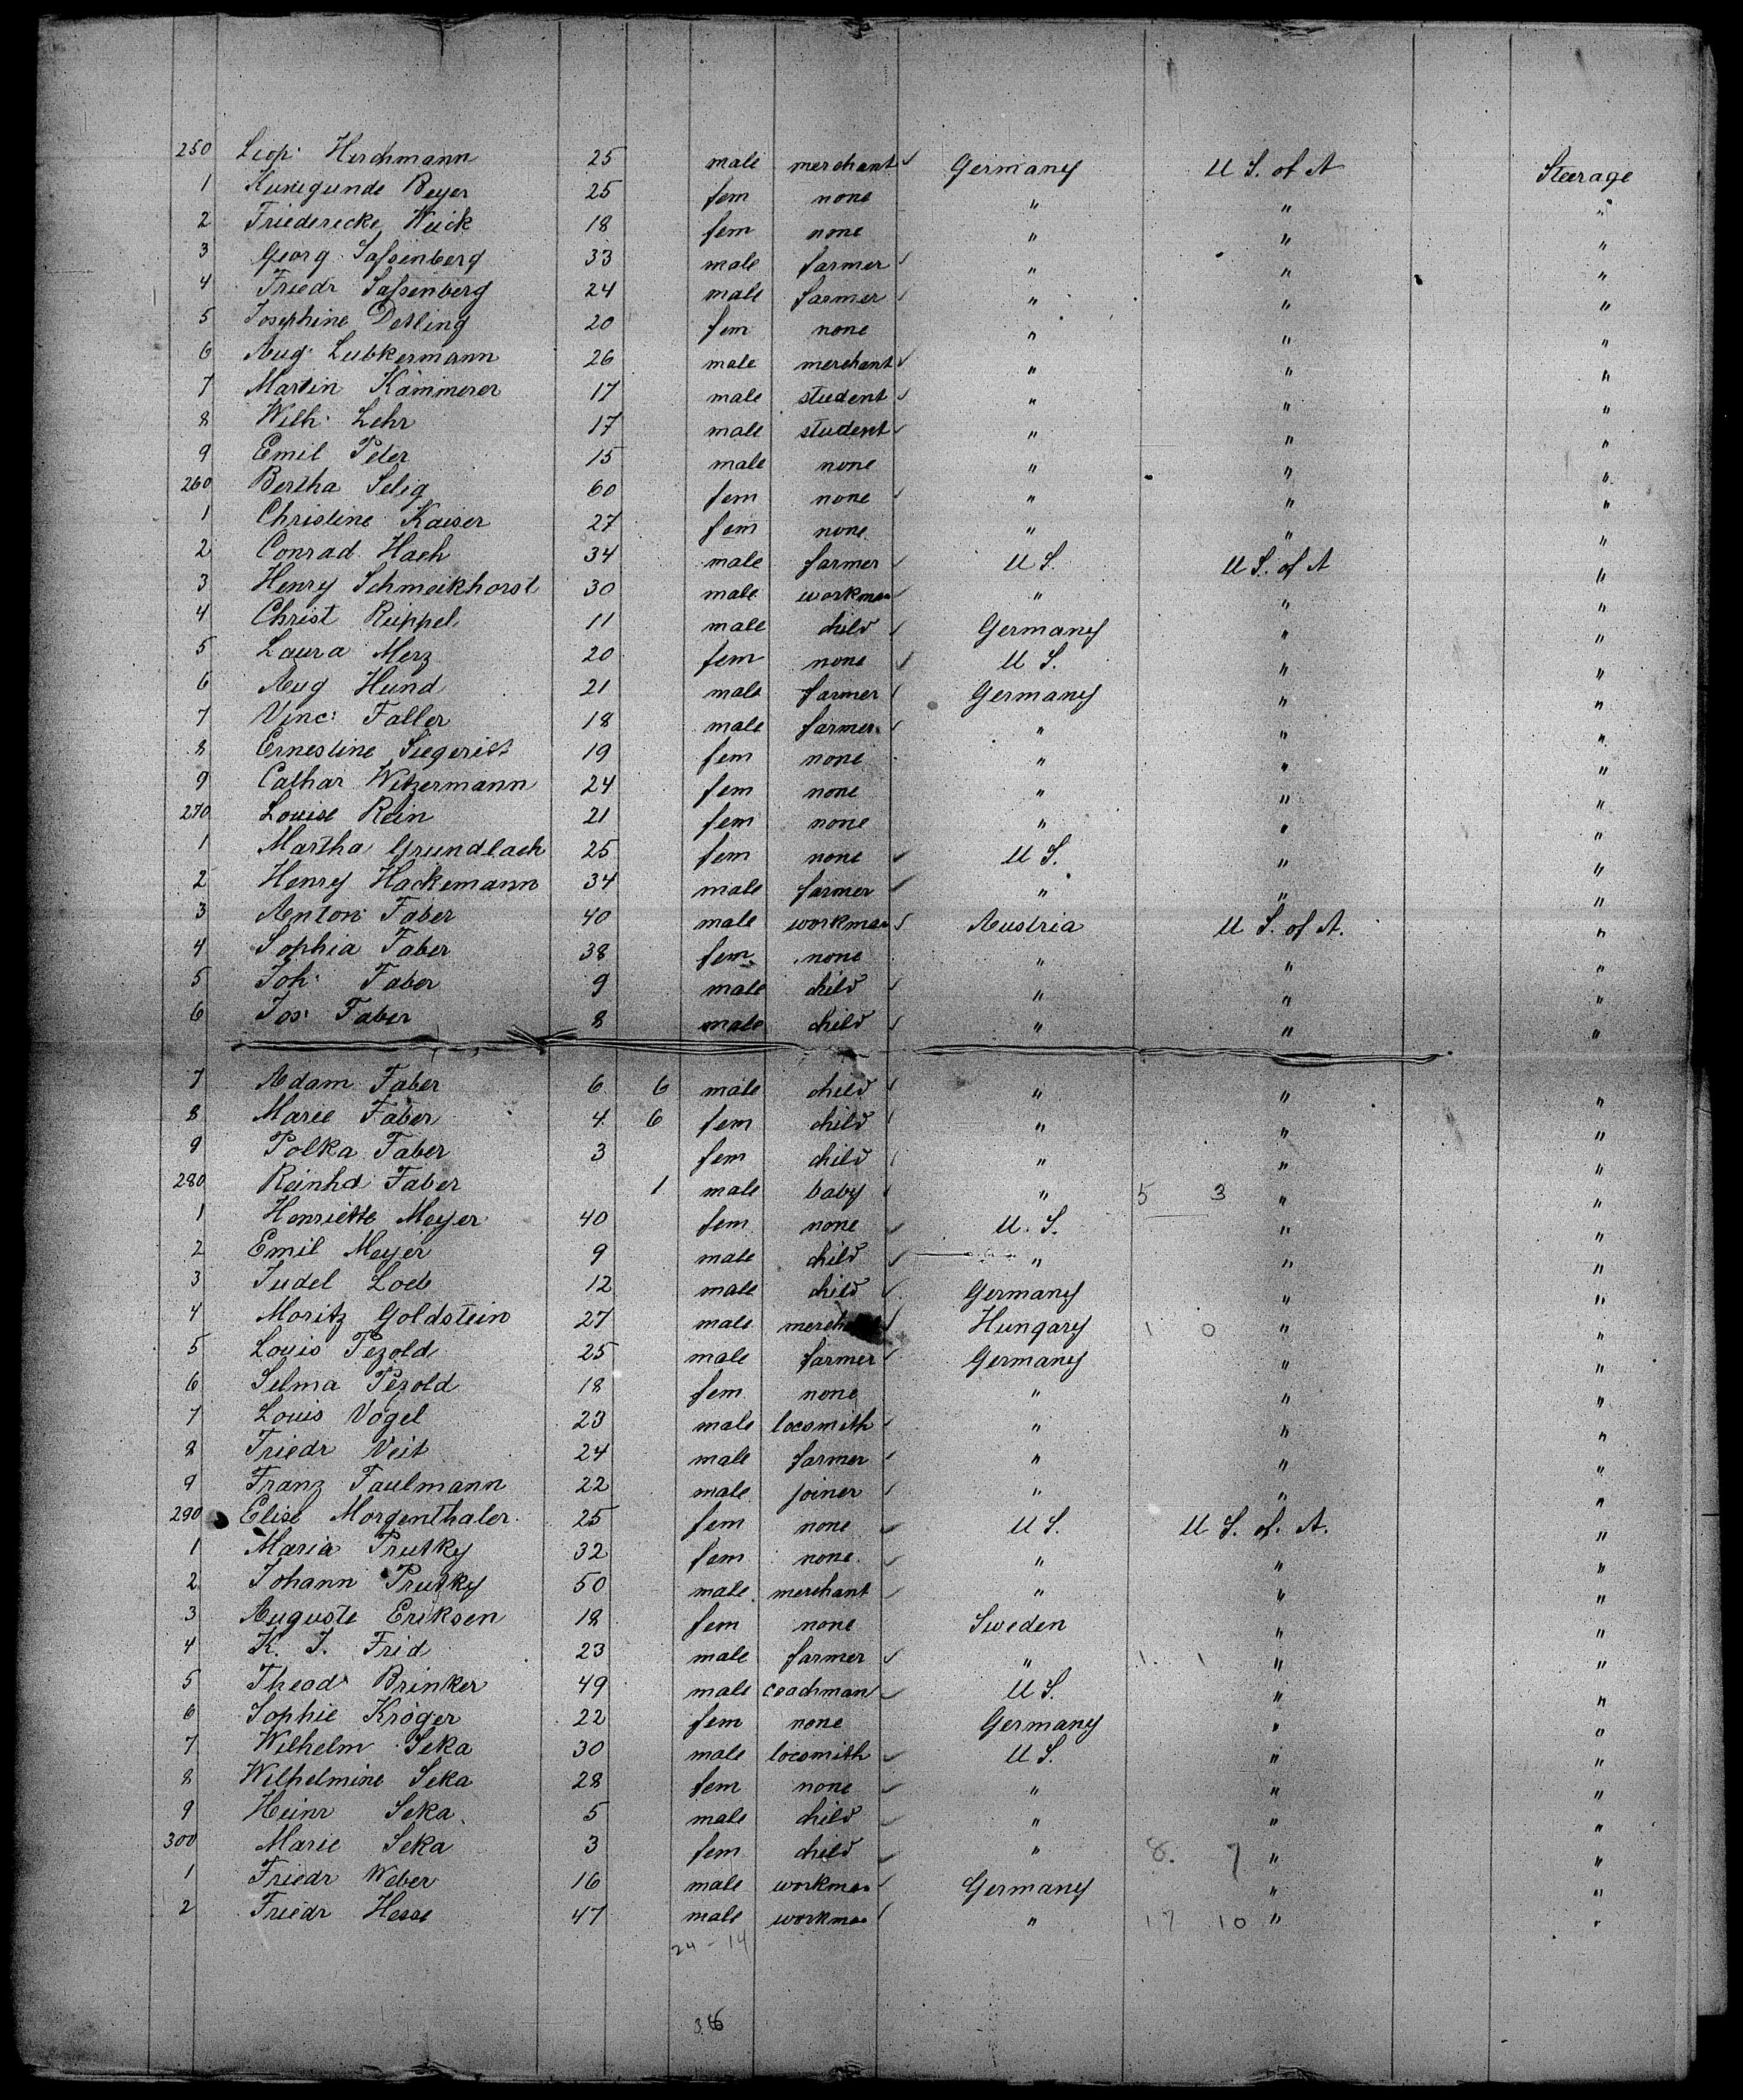 250 Leop. Herchmann 25 male merchant Germany U S. of A Steerage
1 Kunegunde Beyer 25 fem none " " "
2 Friederecke Weick 18 fem none " " "
3 Georg Saſsenberg 33 male farmer " " "
4 Friedr Saſsenberg 24 male farmer " " "
5 Josephine Detling 20 fem none " " "
6 Aug. Lubkermann 26 male merchant " " "
7 Martin Kämmerer 17 male student " " "
8 Wilh. Lehr 17 male student " " "
9 Emil Peter 15 male none " " "
260 Bertha Selig 60 fem none " " "
1 Christine Kaiser 27 fem none " " "
2 Conrad Hach 34 male farmer U S. U S. of A "
3 Henry Schmeikhorst 30 male workman " " "
4 Christ Rüppel 11 male child Germany " "
5 Laura Merz 20 fem none U S. " "
6 Aug Hund 21 male farmer Germany " "
7 Vinc: Faller 18 male farmer " " "
8 Ernestine Siegerist 19 fem none " " "
9 Cathar Witzermann 24 fem none " " "
270 Louise Rein 21 fem none " " "
1 Martha Grundlach 25 fem none U S. " "
2 Henry Hackemann 34 male farmer " " "
3 Anton Faber 40 male workman Austria U S. of A. "
4 Sophia Faber 38 fem none " " "
5 Joh. Faber 9 male child " " "
6 Jos. Faber 8 male child " " "
7 Adam Faber 6 6 male child " " "
8 Marie Faber 4 6 fem child " " "
9 Polka Faber 3 fem child " " "
280 Reinhd Faber 1 male baby " 5 3 " "
1 Henriette Meyer 40 fem none U. S. " "
2 Emil Meyer 9 male child " " "
3 Judel Loeb 12 male child Germany " "
4 Moritz Goldstein 27 male merchant Hungary 1 0 " "
5 Louis Pezold 25 male farmer Germany " "
6 Selma Pezold 18 fem none " " "
7 Louis Vogel 23 male locsmith " " "
8 Friedr Veit 24 male farmer " " "
9 Franz Faulmann 22 male joiner " " "
290 Elise Morgenthaler 25 fem none U S. U S. of. A. "
1 Maria Prutky 32 fem none " " "
2 Johann Prutky 50 male merchant " " "
3 Auguste Eriksen 18 fem none Sweden " "
4 K. J. Frid 23 male farmer " 1 1 " "
5 Theod. Brinker 49 male coachman U S. " "
6 Sophie Kröger 22 fem none Germany " "
7 Wilhelm Seka 30 male locsmith U S. " "
8 Wilhelmine Seka 28 fem none " " "
9 Heinr Seka 5 male child " " "
300 Marie Seka 3 fem child " 8. 7 " "
1 Friedr Weber 16 male workman Germany " "
2 Friedr Hesse 47 male workman " 17 10 " "
24 - 14